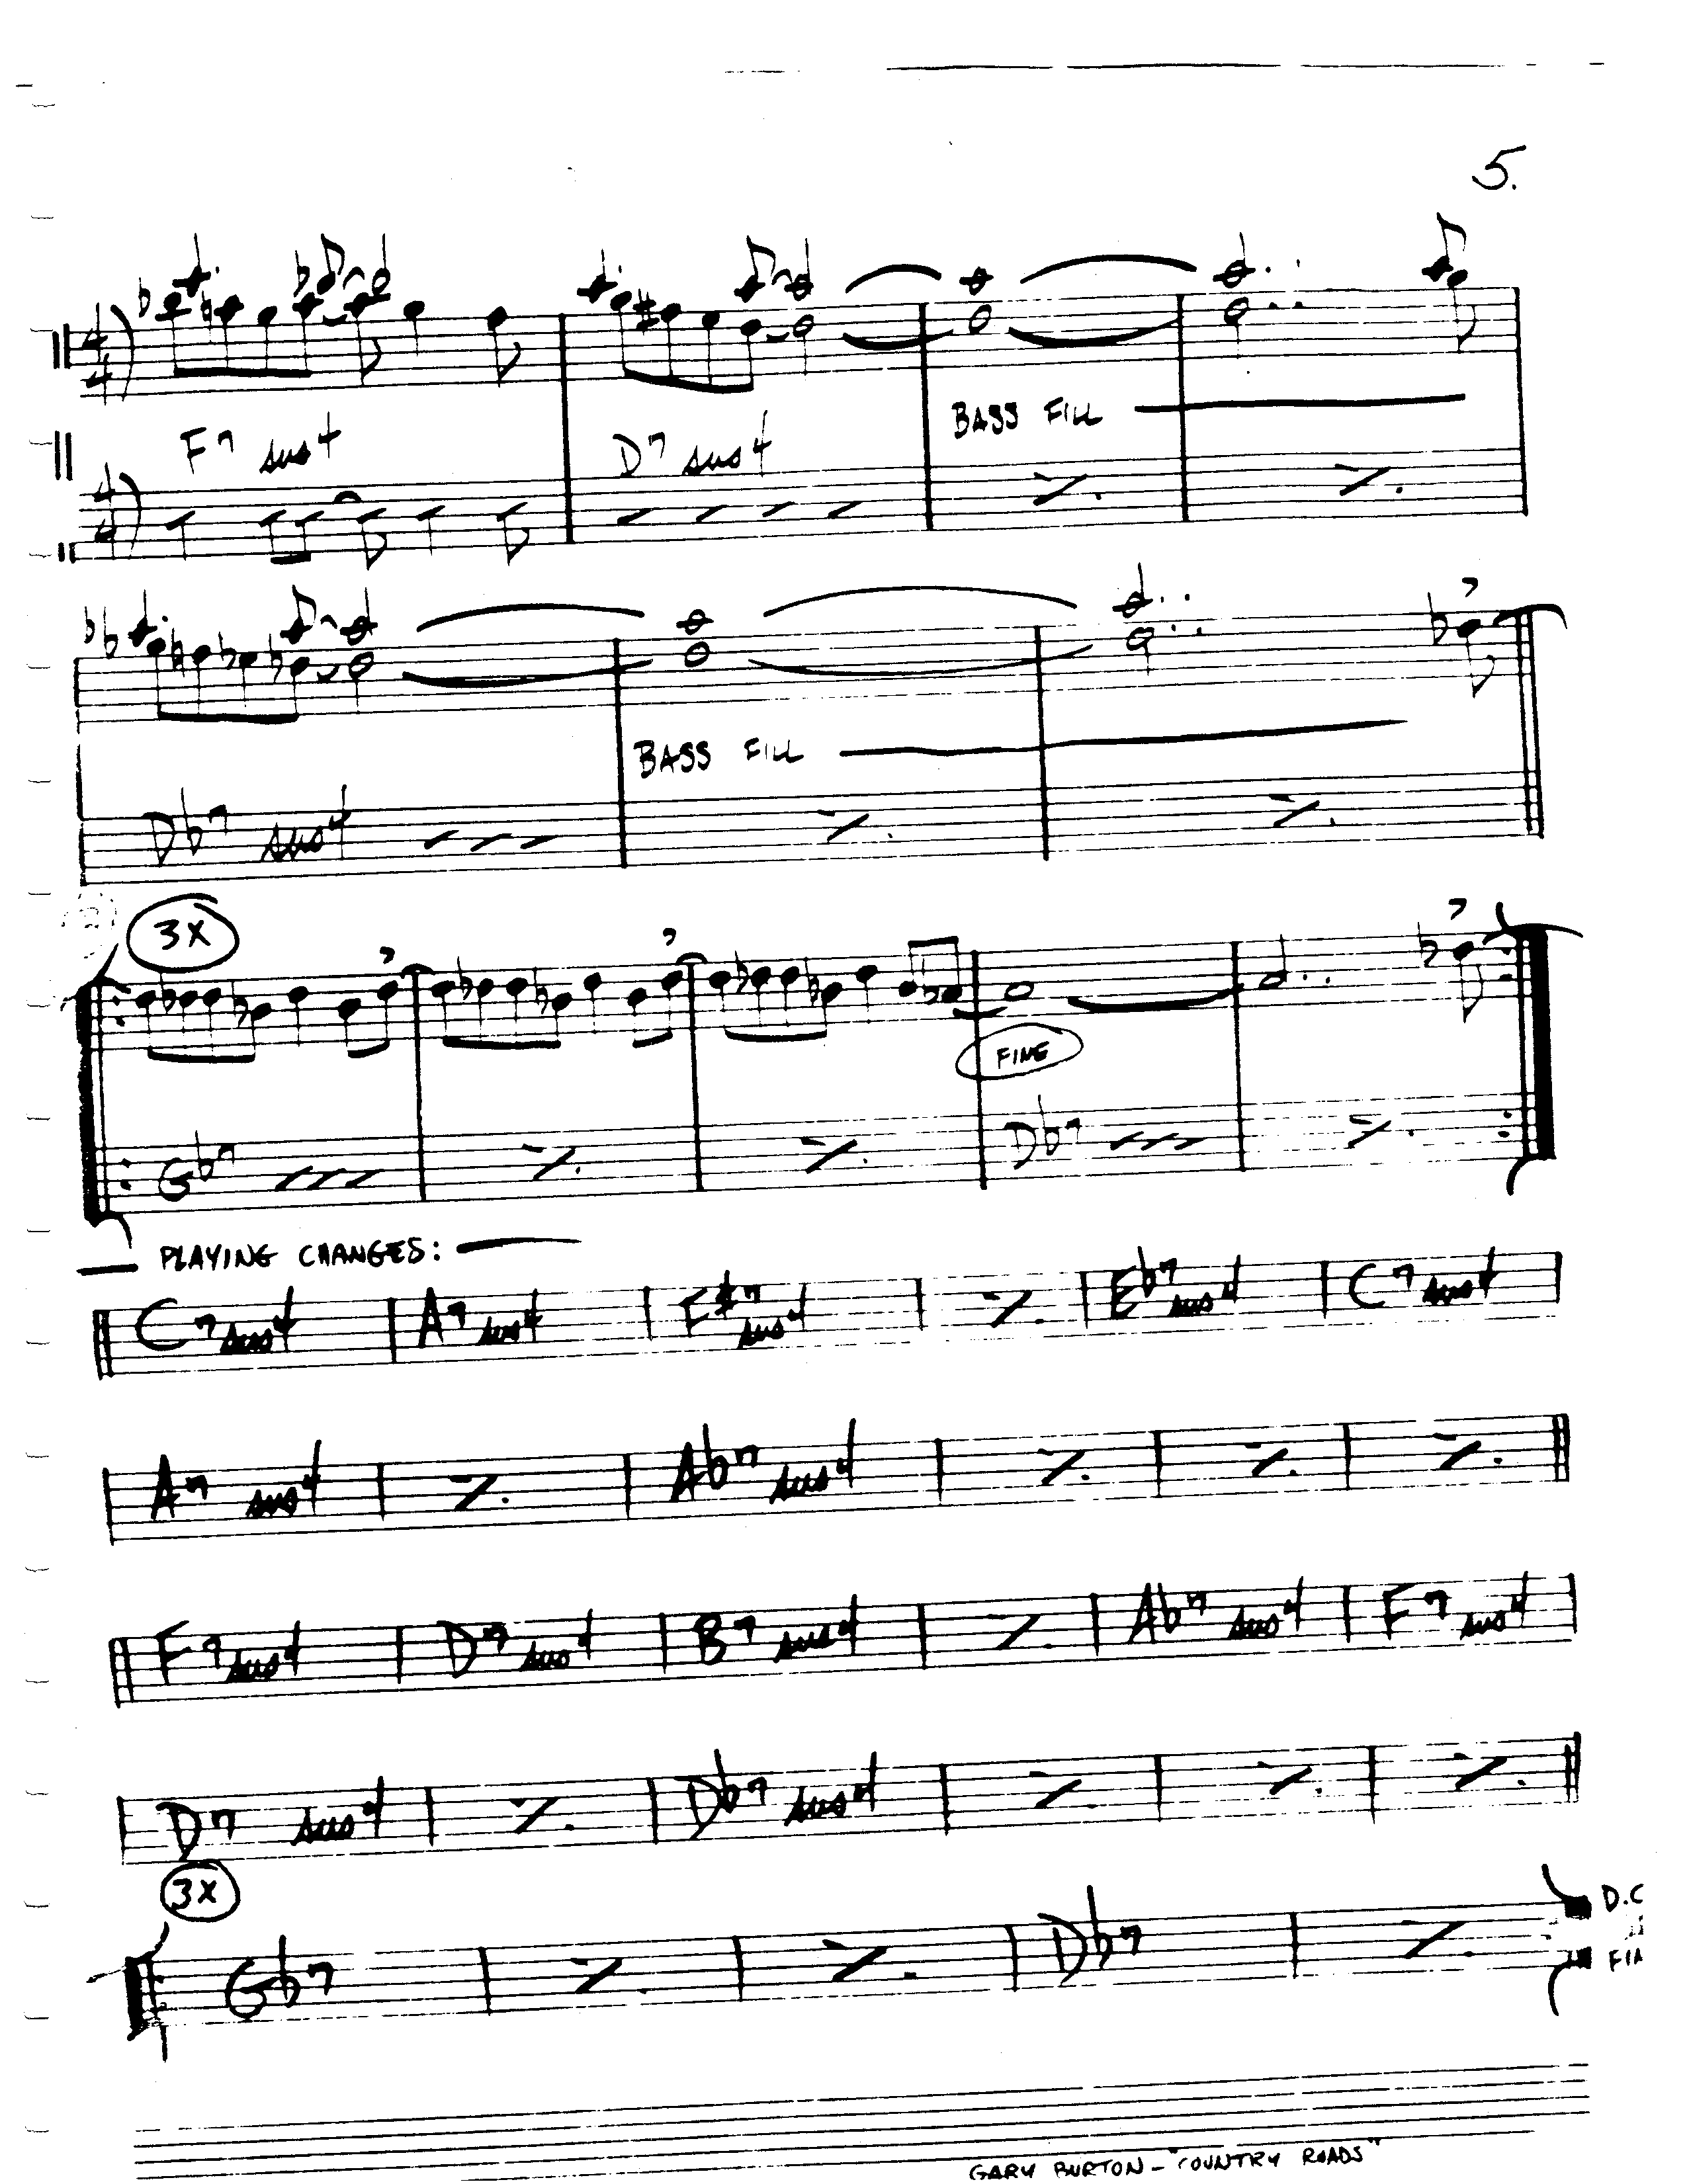 5.
4 4
F7 sus4 D7 sus4 BASS FILL
4 4
BASS FILL
Db7 sus4
3X
FINE
Gb7 Db7
PLAYING CHANGES:
C7sus4 A7sus4 F#7sus4 Eb7sus4 C7sus4
A7 sus4 Ab7 sus4
F7sus4 D7sus4 B7 sus4 Ab7 sus4 F7 sus4
D7 sus4 Db7 sus4
3X
Gb7 Db7 D.C
GARY BURTON - "COUNTRY ROADS"